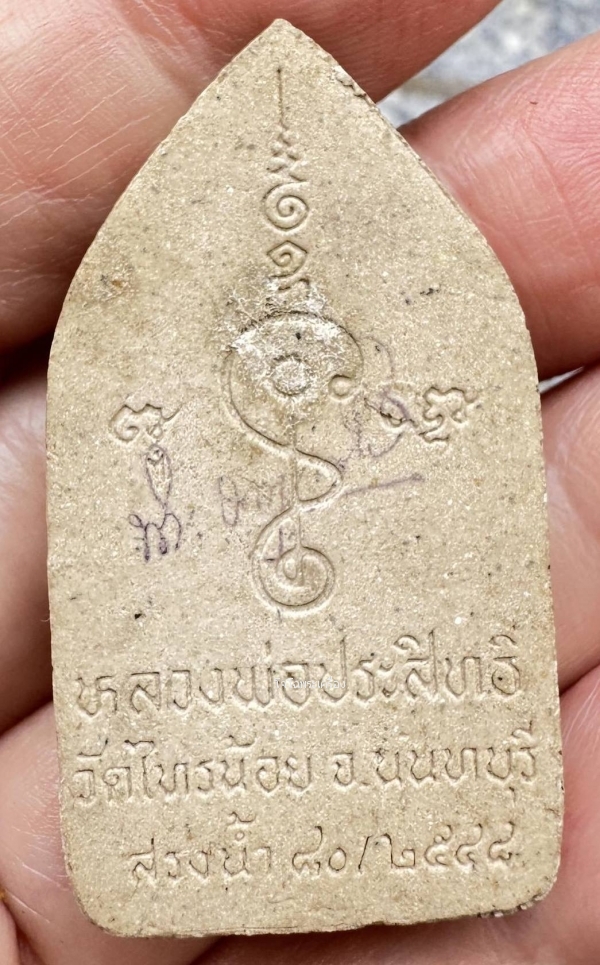 หลวงพ่อประสิทธิ
วัดไทรน้อย จ.นนทบุรี
สรงน้ำ ๘๐/๒๕๔๘